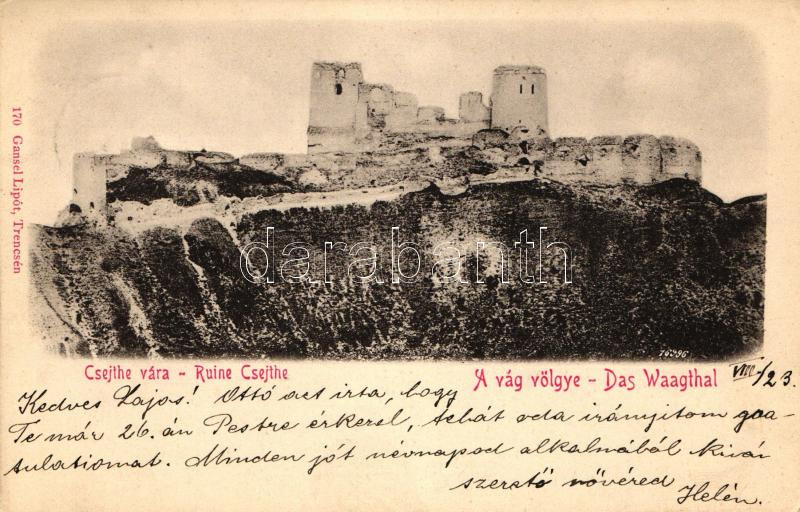 170 Gansel Lipót, Trencsén
darabanth
76296
Csejthe vára - Ruine Csejthe
A vág völgye - Das Waagthal
VIII/23.
Kedves Lajos! Ottó azt irta, hogy
Te már 26.án Pestre érkezel, tehát oda irányitom gra-
tulatiomat. Minden jót névnapod alkalmából kiván
szerető nővéred
Helén.